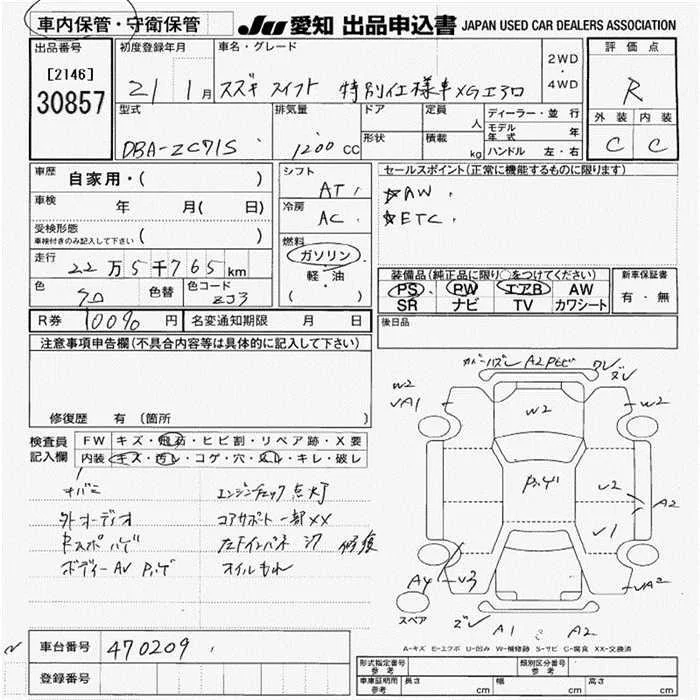 車内保管・守衛保管
JU 愛知 出品申込書 JAPAN USED CAR DEALERS ASSOCIATION
出品番号
[2146]
30857
初度登録年月
21 1月
車名・グレード
スズキ スイフト 特別仕様車 XGエアロ
2WD
・
4WD
評価点
R
外装 内装
C C
型式
DBA-ZC71S
排気量
1200 CC
ドア
形状
定員
人
積載
kg
ディーラー・並行
モデル年式 年
ハンドル 左・右
車歴
自家用・( )
車検
年 月( 日)
受検形態
車検付きのみ記入して下さい ( )
走行
22万5千765km
色
クロ
色替
色コード
ZJ3
シフト
AT
冷房
AC
燃料
ガソリン
・
軽・油
( )
セールスポイント(正常に機能するものに限ります)
☆AW
☆ETC
装備品(純正品に限り○をつけてください)
PS PW エアB AW
SR ナビ TV カワシート
新車保証書
有・無
R券 100% 円
名変通知期限 月 日
後日品
注意事項申告欄(不具合内容等は具体的に記入して下さい)
修復歴 有 (箇所
検査員
記入欄
FW キズ・飛石・ヒビ割・リペア跡・X要
内装 キズ・汚レ・コゲ・穴・スレ・キレ・破レ
エンジンチェック点灯
外オーディオ コアサポート一部XX
ボディーAV オイルもれ
W2
A2
W2
W2
U2
A2
V1
A4
V3
スペア
A1
A2
A-キズ E-エクボ U-凹み W-補修跡 S-サビ C-腐食 XX-交換済
車台番号 470209
登録番号
形式指定番号
参考
類別区分番号
参考
車庫証明用
参考
長さ cm
幅 cm
高さ cm